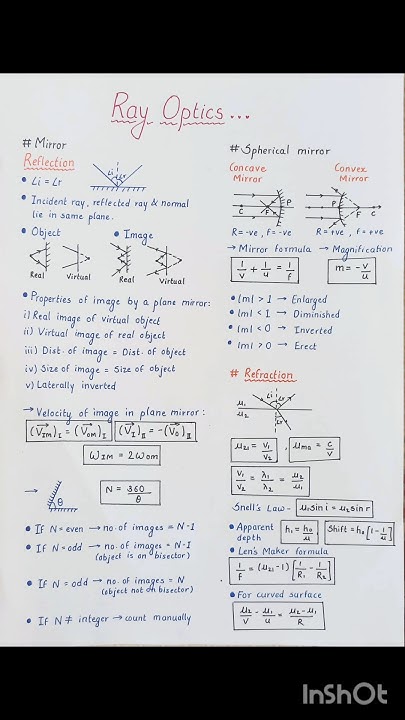 Ray Optics...
# Mirror
Reflection
Li Lr
• Li = Lr
• Incident ray, reflected ray & normal
lie in same plane.
• Object • Image
Real Virtual Real Virtual
• Properties of image by a plane mirror:
i) Real image of virtual object
ii) Virtual image of real object
iii) Dist. of image = Dist. of object
iv) Size of image = Size of object
v) Laterally inverted
→ Velocity of image in plane mirror:
(V⃗IM)I = (V⃗OM)I (V⃗I)II = -(V⃗O)II
ωIM = 2ωOM
θ N = 360/θ
• If N = even → no. of images = N-1
• If N = odd → no. of images = N-1
(object is on bisector)
• If N = odd → no. of images = N
(object not on bisector)
• If N ≠ integer → count manually
# Spherical mirror
Concave Mirror
Convex Mirror
C F P P F C
R = -ve, f = -ve R = +ve, f = +ve
→ Mirror formula → Magnification
1/v + 1/u = 1/f m = -v/u
• |m| > 1 → Enlarged
• |m| < 1 → Diminished
• |m| < 0 → Inverted
• |m| > 0 → Erect
# Refraction
Li
μ1
μ2
Lr
μ21 = v1/v2 , μma = c/v
v1/v2 = λ1/λ2 = μ2/μ1
Snell's Law - μ1 sin i = μ2 sin r
• Apparent depth h1 = h0/μ Shift = h0[1 - 1/μ]
• Len's Maker formula
1/f = (μ21 - 1) [1/R1 - 1/R2]
• For curved surface
μ2/v - μ1/u = μ2 - μ1/R
InShOt